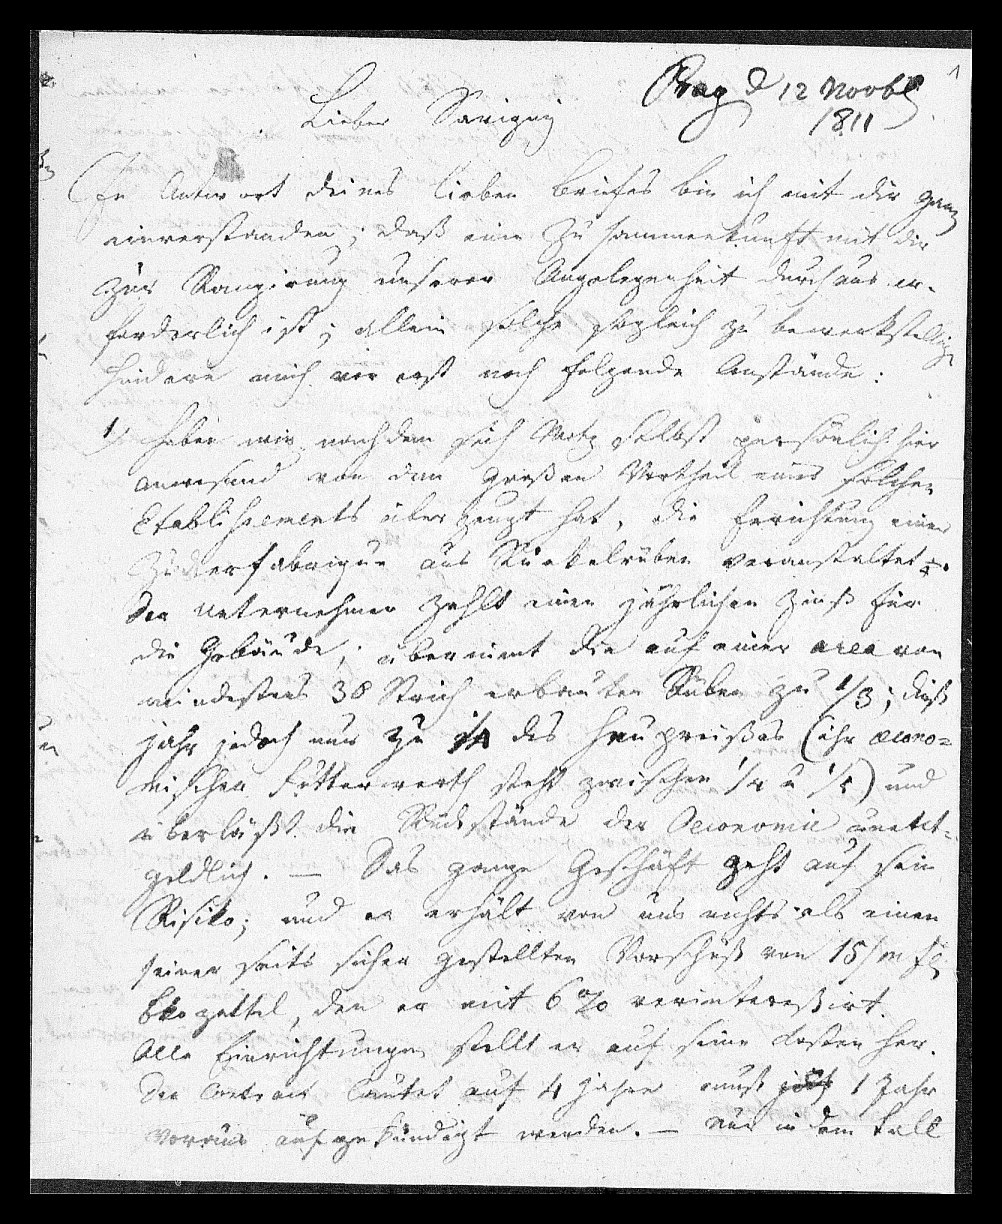 1
Prag d 12 Novbr
1811
Lieber Savigny
In Antwort deines lieben Briefes bin ich mit dir ganz
einverstanden; daß eine Zusammenkunft mit dir
zur Rangirung unserer Angelegenheit durchaus er-
forderlich ist; allein solche sogleich zu bewerkstellige
hindern mich vor erst noch folgende Anstände:
1/ haben wir nachdem sich selbst persönlich hier
anwesend von dem großen Vortheil eines solchen
Etablissements überzeugt hat, die Errichtung einer
Zuckerfabrique aus Runkelrüben veranstaltet
Der Unternehmer zahlt einen jährlichen Zinß für
die Gebäude; übernimt die auf einer area von
mindestens 38 Strich erbauten Rüben zu 1/3; dieß
jahr jedoch nur zu 1/4 des Heupreißes (ihr oecono=
mischer Futterwerth steht zwischen 1/4 u 1/5) und
überläßt die Rückstände der Oeconomie unent-
geldlich. — Das ganze Geschäft geht auf sein
Risiko; und er erhält von uns nichts als einen
seiner seits sicher gestellten Vorschuß von 15/m fl
Bko zettel, den er mit 6 % verinteressirt.
Alle Einrichtungen stellt er auf seine Kosten her.
Der Contract lautet auf 4 Jahre muß 1 Jahr
voraus aufgekündigt werden. — Nur in dem Fall